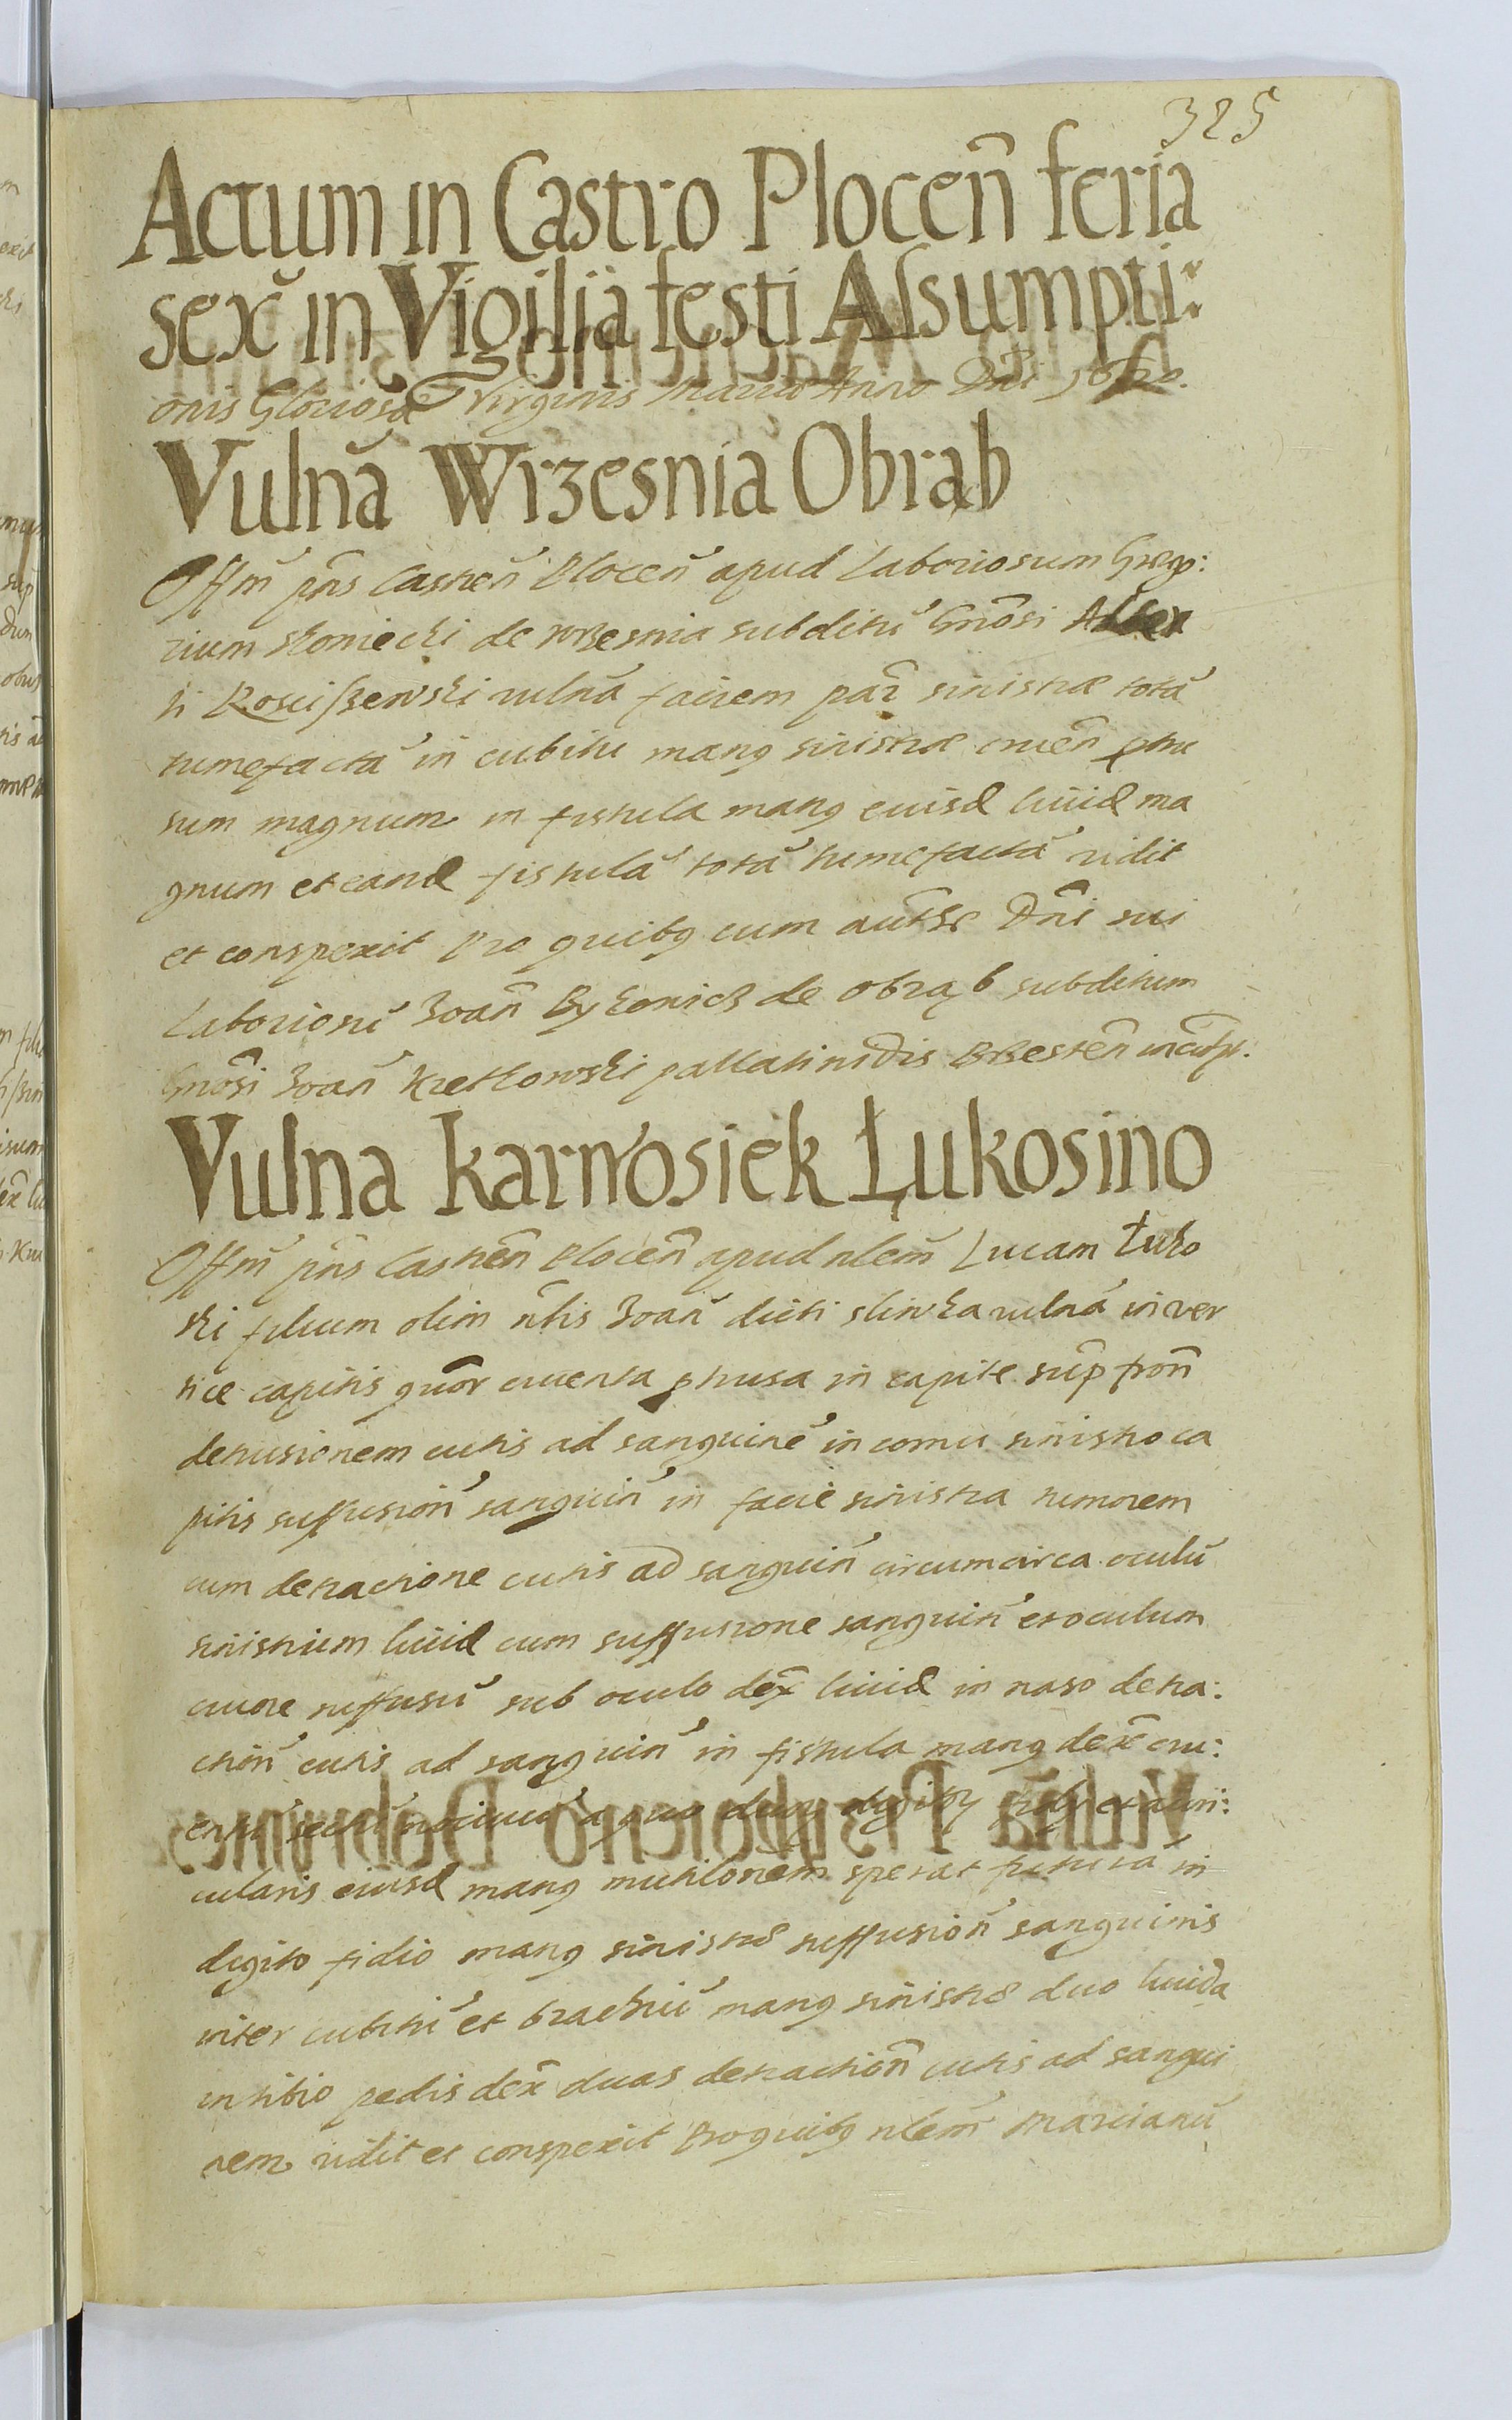 325
Actum in Castro Plocen̄ feria
sex̆ in Vigilia festi Assumpti:
onis Gloriosæ Virginis Mariæ Anno Dn̄i
Vulnă Wrzesnia Obrąb
Offm̄ pn̄s Castren̄ Plocen̄ apud Laboriosum Grego:
rium Koniecki de Wrzesnia subditū Gn̄osi
ti Kosciszewski vulnā faciem par̄ sinistræ totā
tumefactā in cubitu manꝯ sinistræ cruen̄ ꝑtru
sum magnum in fistula manꝯ eiusd livid ma
gnum et eand fistulā totā tumefactā vidit
et conspexit Pro quibꝯ cum Dn̄i sui
Laboriosū Joan̄ Bykonicz de Obrąb subditum
Gn̄osi Joan̄ Kretkowski pallatinidis Brzesten̄ inculp.
Vulna Karwosiek Łukosino
Offm̄ pn̄s Castren̄ Plocen̄ apud nlem̄ Lucam Łuko
ski filium olim n̄lis Joan̄ dicti sliwka vulnā in ver
tice capitis quōr cruenta ꝑtrusa in capite sup̄ fron̄
detrusionem cutis ad sanguinē in cornu sinistro ca
pitis suffusion̄ sanguin̄ in facie sinistra tumorem
cum detractione cutis ad sanguin̄ circumcirca oculū
sinistrum livid cum suffusione sanguin̄ et oculum
cruore suffusū sub oculo dex̄ livid in naso detra:
ction̄ cutis ad sanguin̄ in fistula manꝯ dex̄ cru:
entū a quo et auri:
cularis eiusd manꝯ mutilonem̄ sperat futurā in
digito manꝯ sinistræ suffusion̄ sanguinis
inter cubitū et brachiū manꝯ sinistræ duo livida
in tibio pedis dex̄ duas detraction̄ cutis ad sangui
nem vidit et conspexit Pro quibꝯ nlem̄ Marcianū